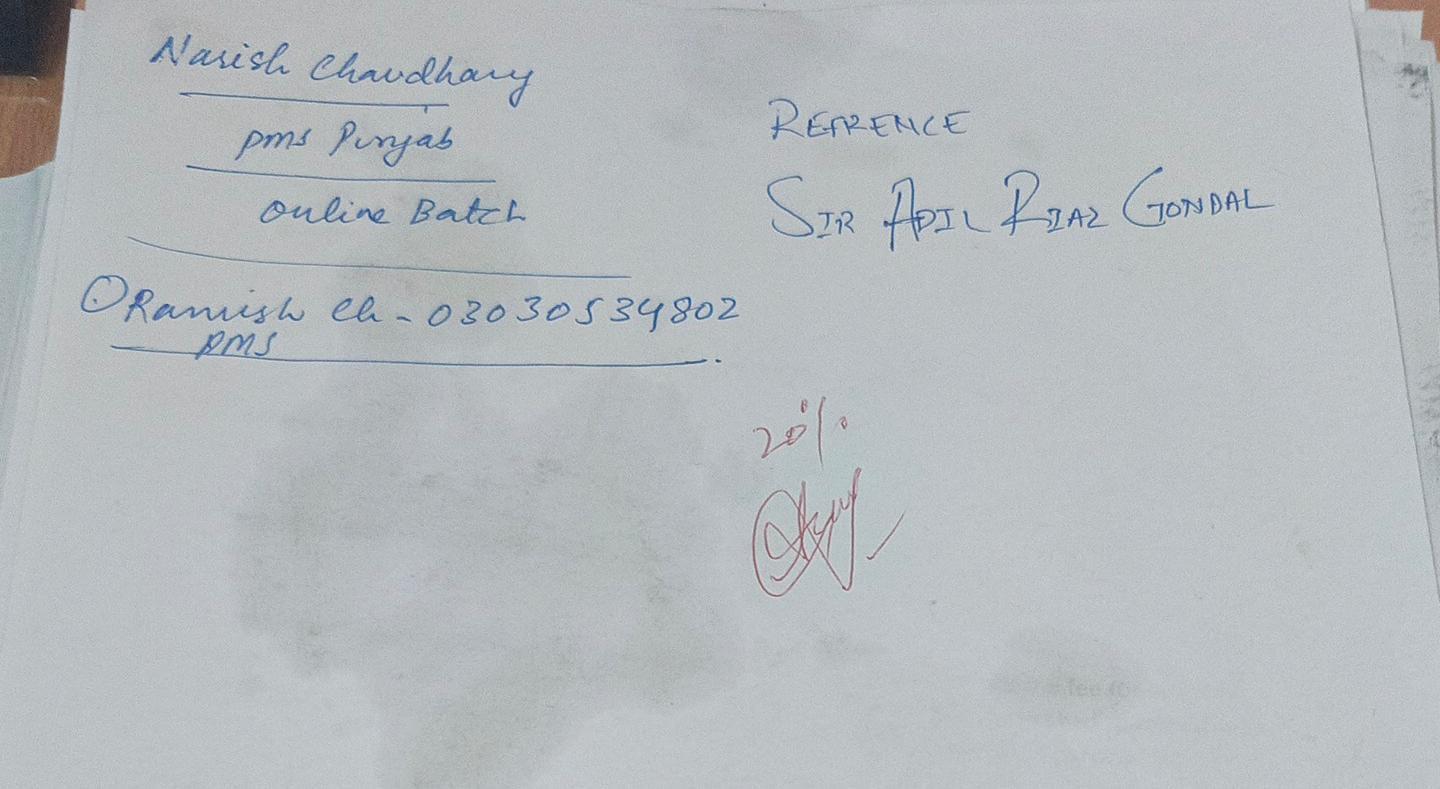 Narish Chaudhary
pms Punjab
online Batch
Ramish Ch - 03030534802
PMS
REFRENCE
SIR ADIL RIAZ GONDAL
20%